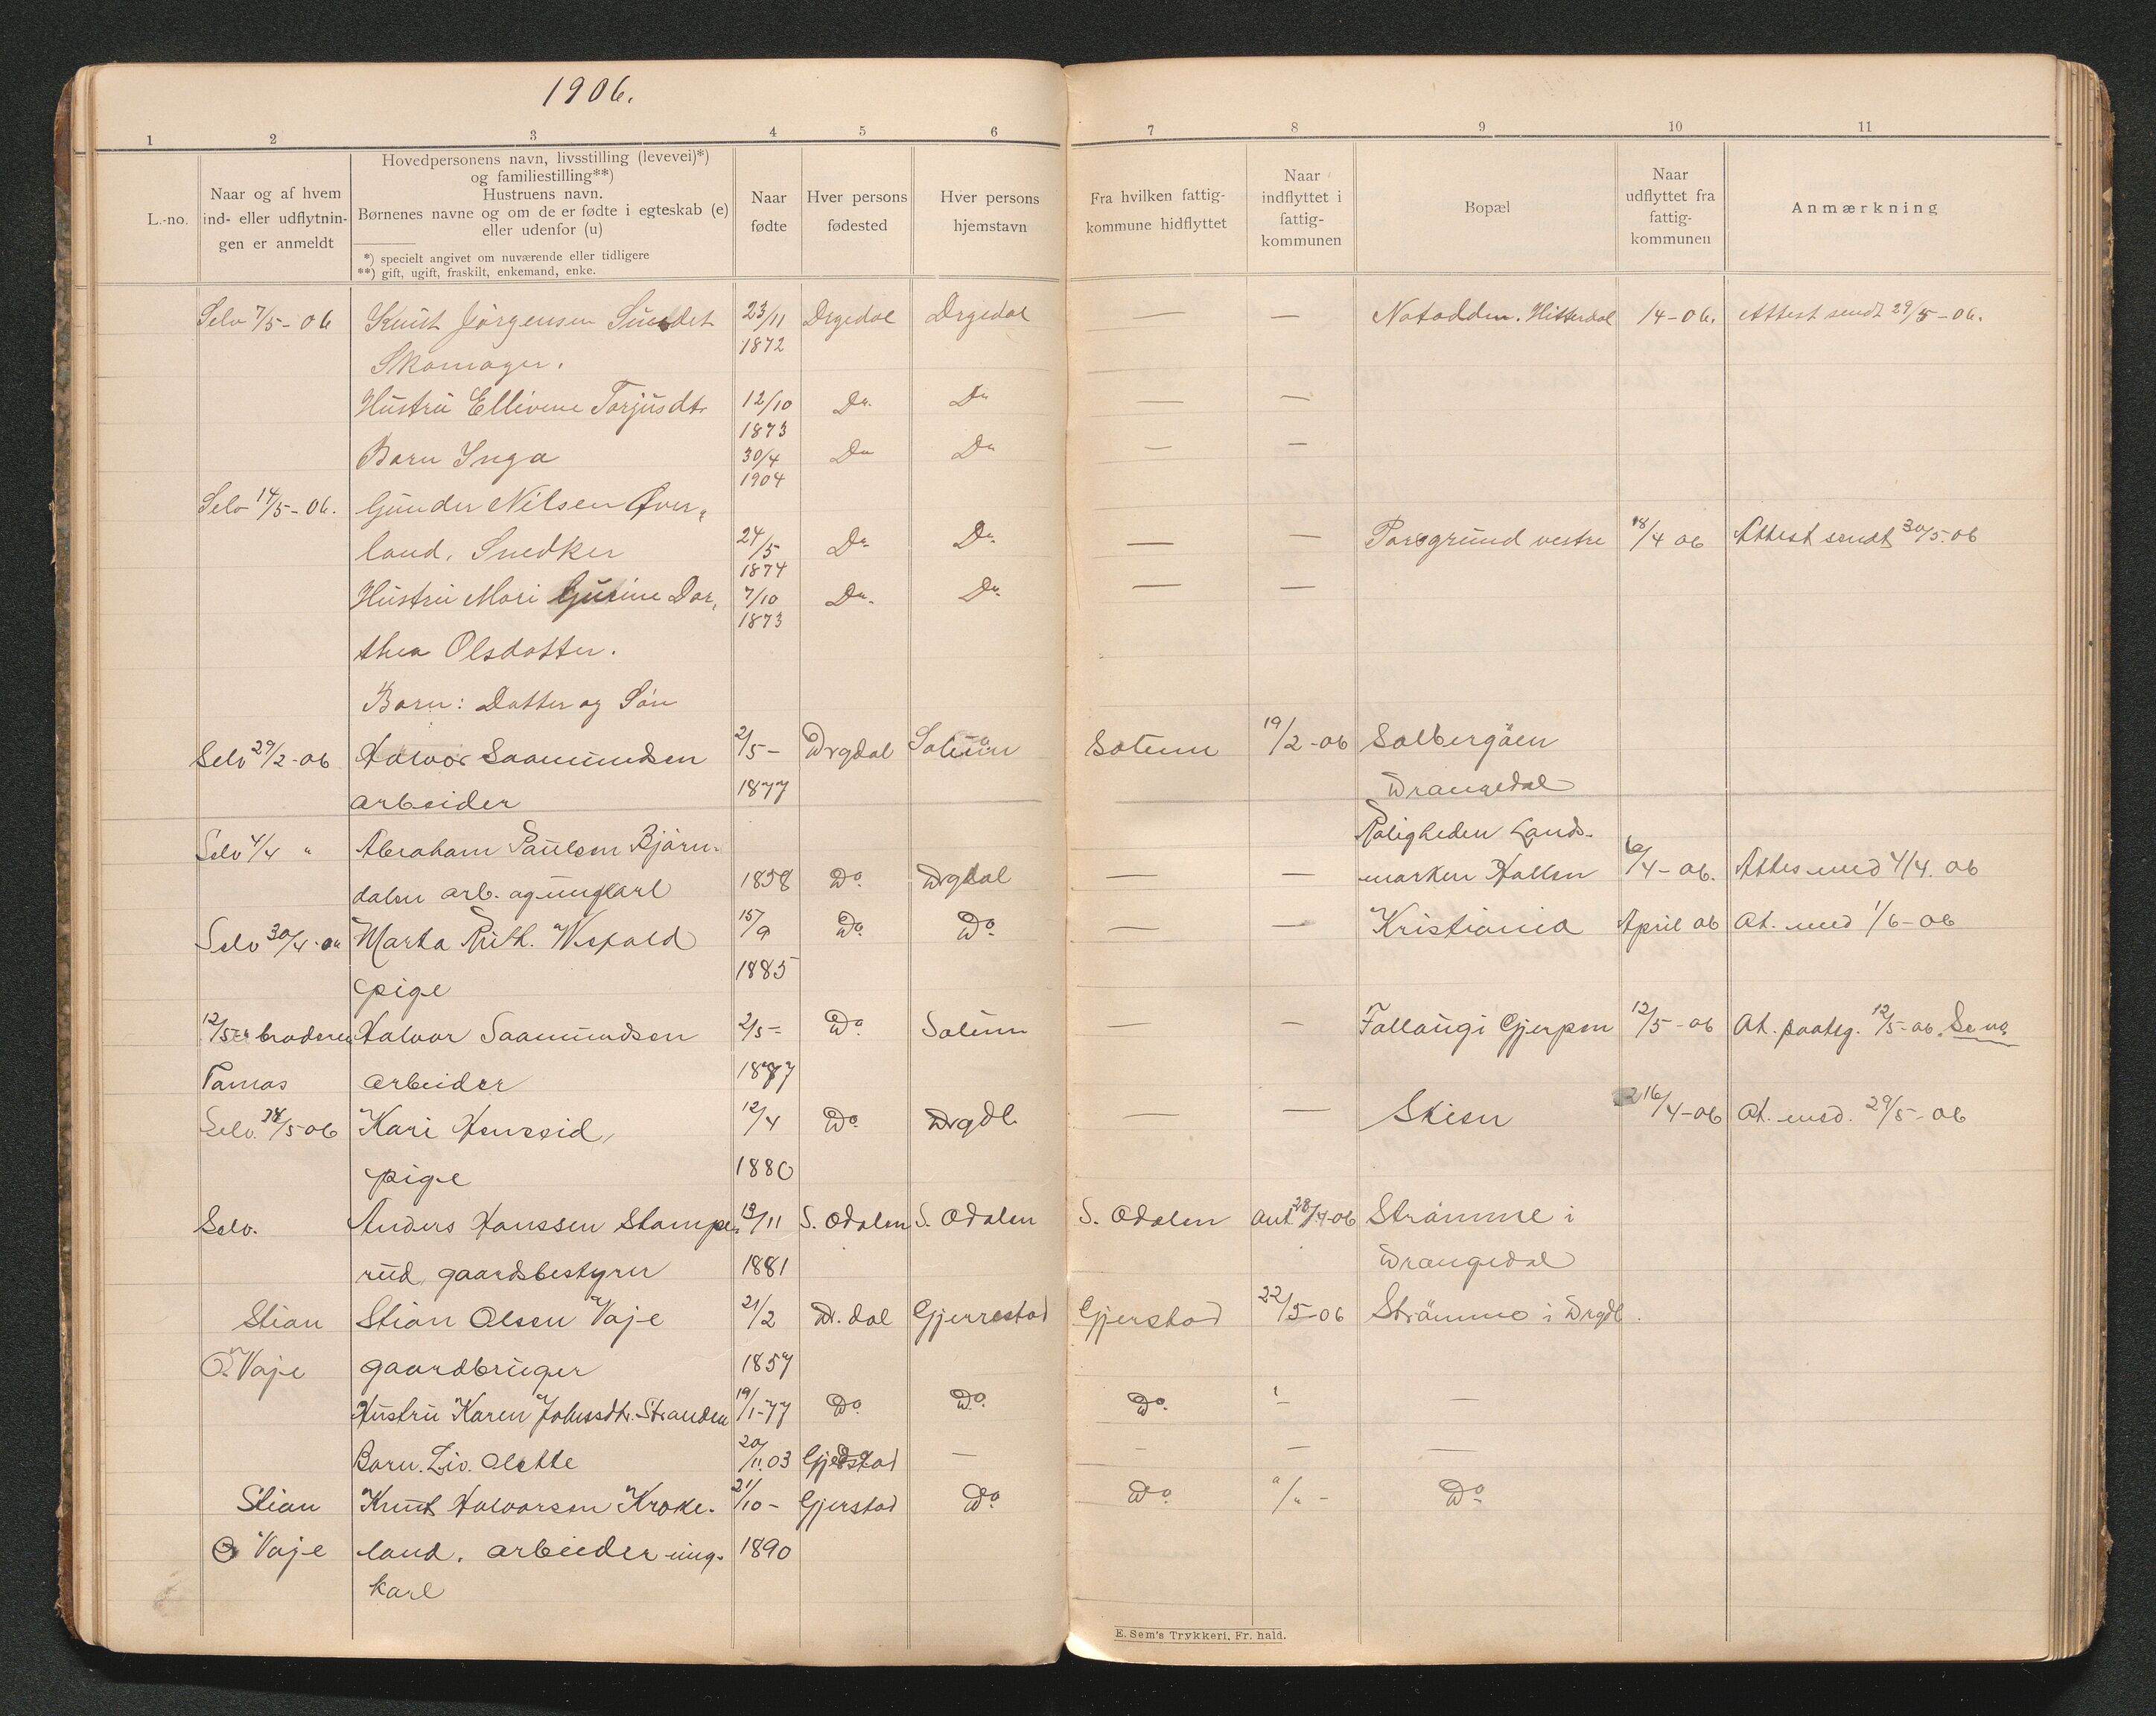 1906.
1 2 3 4 5 6 7 8 9 10 11
L.-no.
Naar og af hvem
ind- eller udflytnin-
gen er anmeldt
Hovedpersonens navn, livsstilling (levevei)*)
og familiestilling**)
Hustruens navn.
Børnenes navne og om de er fødte i egteskab (e)
eller udenfor (u)
*) specielt angivet om nuværende eller tidligere
**) gift, ugift, fraskilt, enkemand, enke.
Naar
fødte
Hver persons
fødested
Hver persons
hjemstavn
Fra hvilken fattig-
kommune hidflyttet
Naar
indflyttet i
fattig-
kommunen
Bopæl
Naar
udflyttet fra
fattig-
kommunen
Anmærkning
Selv 7/5-06 Knut Jørgensen Sundet 23/11 Drgedal Drgedal — — Notodden. Hitterdal 14-06. Attest sendt 29/5-06.
Skomager. 1872
Hustru Ellivine Torjusdtr 12/10 Do. Do — —
1873
Barn Inga 30/4 Do Do — —
1904
Selv 14/5-06. Gunder Nilsen Øver-
land. Snedker 24/5 Do. Do. — — Porsgrund vestre 18/4 06 Attest sendt 30/5.06
1874
Hustru Mari Gurine Dor, 7/10 Do. Do. — —
1873
thea Olsdatter.
Barn: Datter og Søn
Selv 29/2-06 Halvor Saamundsen 2/5- Drgdal Solum Solum 19/2-06 Solbergåen
arbeider 1877 Drangedal
Selv 4/4 " Abraham Paulsen Bjørn- Roligheden Lands-
dalen arb. og ungkarl 1858 Do. Drgdal — — marken Hollen 6/4-06. Attes med 4/4. 06
Selv 30/4-06 Marta Ruth. Wefald 15/9 Do. Do. — — Kristiania April 06 At. med 1/6-06
pige 1885
12/5 broderen Halvor Saamundsen 2/5- Do. Solum — — Follaug i Gjerpen 12/5-06 At. paateg. 12/5-06.
Tomas arbeider 1877
Selv. 14/5 06 Kari Henseid, 12/4 Do. Drgdl. — — Skien 16/4-06 At. med. 29/5-06
pige 1880
Selv. Anders Hanssen Stampe- 13/11 S. Odalen S. Odalen S. Odalen ank 28/4-06 Strømme i
rud, gaardsbestyrer 1881 Drangedal
Stian Stian Olsen Vaje 21/2 Dr. dal Gjerrestad Gjerstad 22/5-06 Strømme i Drgdl.
O. Vaje gaardbruger 1857
Hustru Karen Johnsdtr. Stranden 19/1-77 Do. Do. Do. — —
Barn. Liv. Olette 20/11.03 Gjerstad — - — —
Stian Knut Halvorsen Kroke- 21/10- Gjerstad Do. Do. "/" - Do.
O Vaje land. arbeider ung- 1890
karl
E. Sem's Trykkeri, Fr. hald.